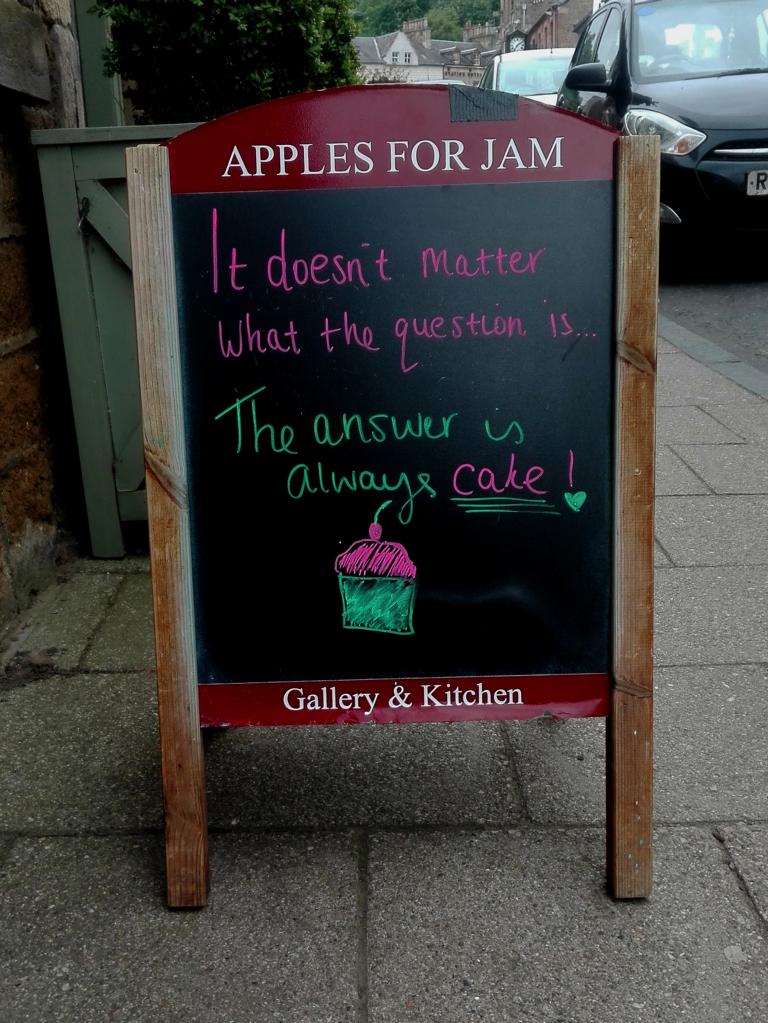 APPLES FOR JAM
It doesn't matter
What the question is...
The answer is
always cake!
Gallery & Kitchen
R